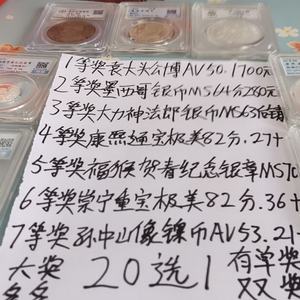 1等奖袁大头公博AV50.1700元
2等奖墨西哥银币MS64分280元
3等奖大力神法郎银币MS63
4等奖康熙通宝极美82分.27+
5等奖福猴贺春纪念银章MS70
6等奖崇宁重宝极美82分.36+
7等奖孙中山像镍币AV53.21+
大奖
多多
20选1
有单奖
双奖